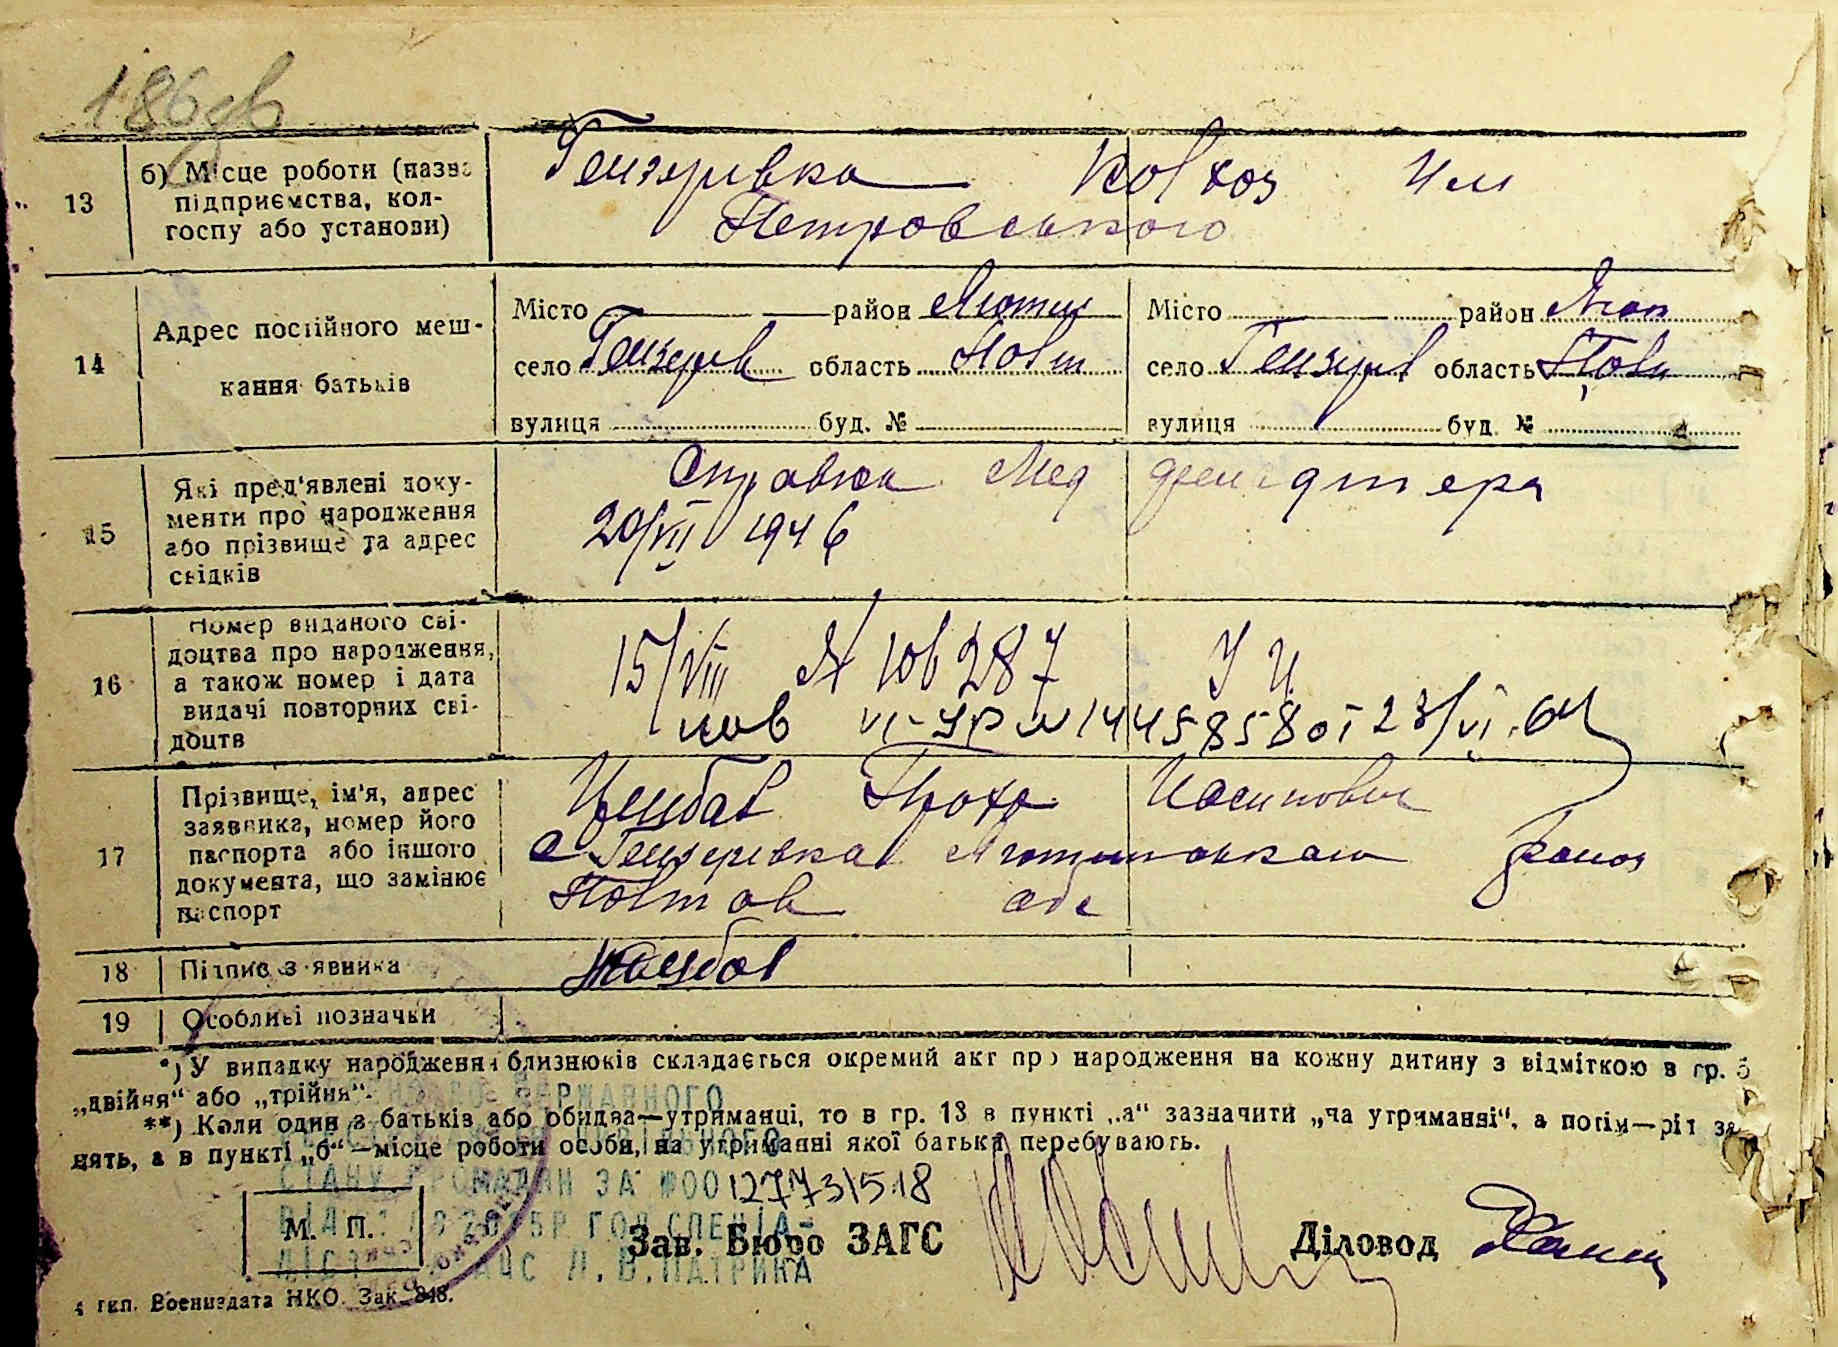 186
13 б) Місце роботи (назва підприємства, колгоспу або установи) Гензерівка колхоз Им
Петровського
14 Адрес постійного мешкання батьків
Місто район Яготин Місто район Ягот
село Гензерів область Полт село Гензерів область Полт
вулиця буд. № вулиця буд. №
15 Які пред'явлені документи про народження або прізвище та адрес свідків Справка Мед фельдшера
20/VII 1946
16 Номер виданого свідоцтва про народження, а також номер і дата видачі повторних свідоцтв 15/VIII № 106287 УЦ
пов VI-УР № 1445858 от 23/VI.64
17 Прізвище, ім'я, адрес заявника, номер його паспорта або іншого документа, що замінює паспорт Цимбал Прохр
с Гензерівка район
Полтав обл
18 Підпис заявника Цимбал
19 Особливі позначки
*) У випадку народження близнюків складається окремий акт про народження на кожну дитину з відміткою в гр. 5
„двійня“ або „трійня“.
**) Коли один з батьків або обидва—утриманці, то в гр. 13 в пункті „а“ зазначити „на утриманні“, а потім—рід за
нять, а в пункті „б“—місце роботи особи, на утриманні якої батьки перебувають.
ДЕРЖАВНОГО
СТАНУ ГРОМАДЯН ЗА №00127731518
М. П. Зав. Бюро ЗАГС Діловод
Л.В.ПАТРИКА
4 тип. Воениздата НКО. Зак. 848.